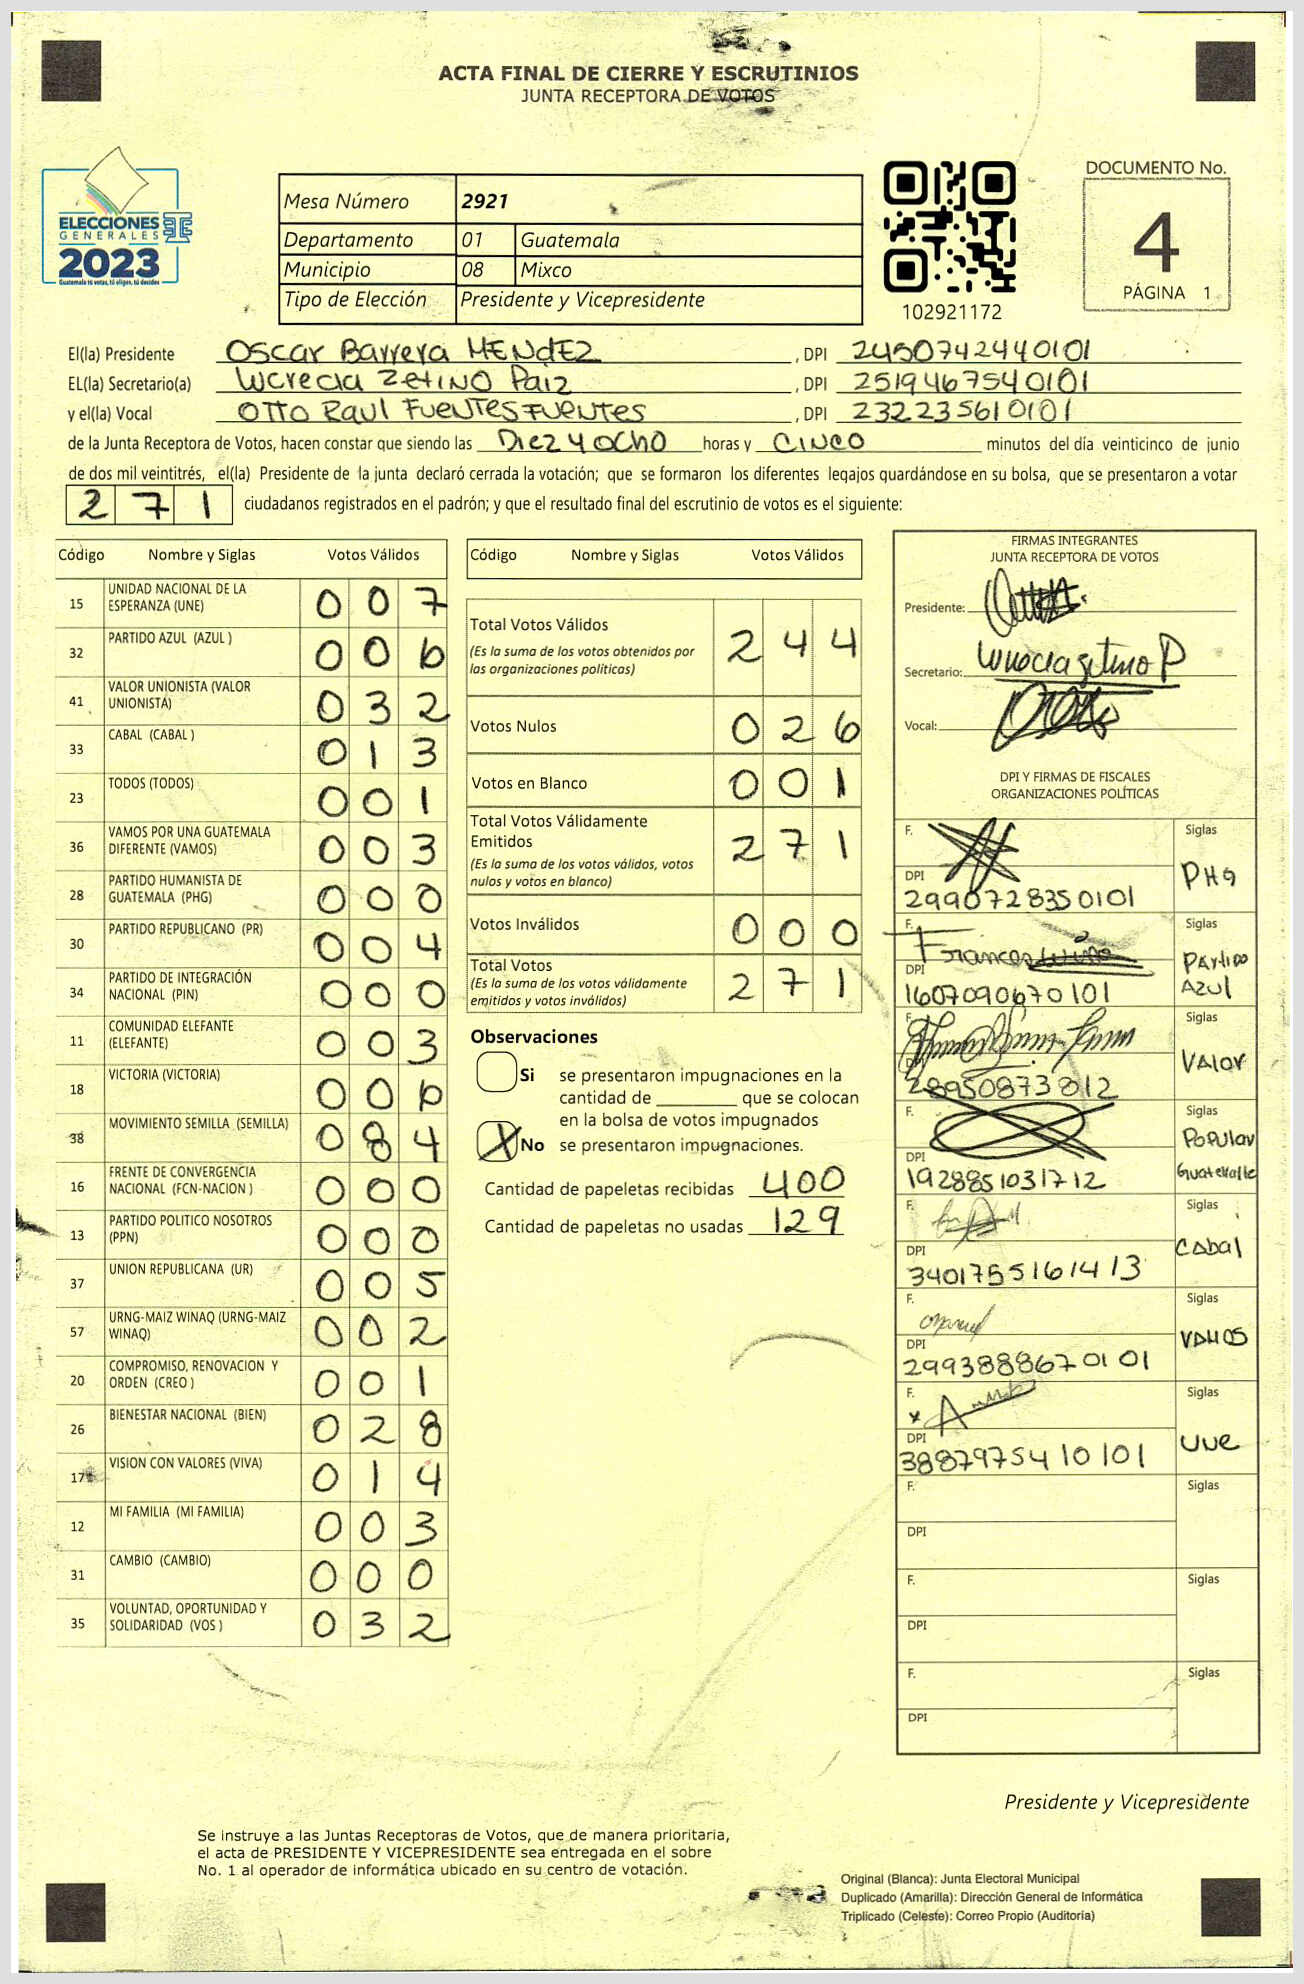 ACTA FINAL DE CIERRE Y ESCRUTINIOS
JUNTA RECEPTORA DE VOTOS
ELECCIONES
GENERALES
2023
Guatemala tú votas, tú eliges, tú decides
Mesa Número 2921
Departamento 01 Guatemala
Municipio 08 Mixco
Tipo de Elección Presidente y Vicepresidente
102921172
DOCUMENTO No.
4
PÁGINA 1
El(la) Presidente Oscar Barrera MENdEZ , DPI 2450742440101
EL(la) Secretario(a) Lucrecia Zetino Paiz , DPI 2519467540101
y el(la) Vocal OTTO RAUL FUENTES FUENTES , DPI 232235610101
de la Junta Receptora de Votos, hacen constar que siendo las Diez y ocho horas y CINCO minutos del día veinticinco de junio
de dos mil veintitrés, el(la) Presidente de la junta declaró cerrada la votación; que se formaron los diferentes legajos guardándose en su bolsa, que se presentaron a votar
271 ciudadanos registrados en el padrón; y que el resultado final del escrutinio de votos es el siguiente:
Código Nombre y Siglas Votos Válidos
15 UNIDAD NACIONAL DE LA ESPERANZA (UNE) 007
32 PARTIDO AZUL (AZUL ) 006
41 VALOR UNIONISTA (VALOR UNIONISTA) 032
33 CABAL (CABAL ) 013
23 TODOS (TODOS) 001
36 VAMOS POR UNA GUATEMALA DIFERENTE (VAMOS) 003
28 PARTIDO HUMANISTA DE GUATEMALA (PHG) 000
30 PARTIDO REPUBLICANO (PR) 004
34 PARTIDO DE INTEGRACIÓN NACIONAL (PIN) 000
11 COMUNIDAD ELEFANTE (ELEFANTE) 003
18 VICTORIA (VICTORIA) 006
38 MOVIMIENTO SEMILLA (SEMILLA) 084
16 FRENTE DE CONVERGENCIA NACIONAL (FCN-NACION ) 000
13 PARTIDO POLITICO NOSOTROS (PPN) 000
37 UNION REPUBLICANA (UR) 005
57 URNG-MAIZ WINAQ (URNG-MAIZ WINAQ) 002
20 COMPROMISO, RENOVACION Y ORDEN (CREO ) 001
26 BIENESTAR NACIONAL (BIEN) 028
17 VISION CON VALORES (VIVA) 014
12 MI FAMILIA (MI FAMILIA) 003
31 CAMBIO (CAMBIO) 000
35 VOLUNTAD, OPORTUNIDAD Y SOLIDARIDAD (VOS ) 032
Código Nombre y Siglas Votos Válidos
Total Votos Válidos 244
(Es la suma de los votos obtenidos por
las organizaciones políticas)
Votos Nulos 026
Votos en Blanco 001
Total Votos Válidamente
Emitidos 271
(Es la suma de los votos válidos, votos
nulos y votos en blanco)
Votos Inválidos 000
Total Votos 271
(Es la suma de los votos válidamente
emitidos y votos inválidos)
Observaciones
Si se presentaron impugnaciones en la
cantidad de ________ que se colocan
en la bolsa de votos impugnados
X No se presentaron impugnaciones.
Cantidad de papeletas recibidas 400
Cantidad de papeletas no usadas 129
FIRMAS INTEGRANTES
JUNTA RECEPTORA DE VOTOS
Presidente:
Secretario:
Vocal:
DPI Y FIRMAS DE FISCALES
ORGANIZACIONES POLÍTICAS
F. Siglas
DPI 2990728350101 PHG
F. Siglas
DPI 1607090670101 PARTIDO AZUL
F. Siglas
DPI 28950873812 VALOR
F. Siglas
DPI 1928851031712 POPULAR
F. Siglas
DPI 3401755161413 CABAL
F. Siglas
DPI 2993888670101 VAMOS
F. Siglas
DPI 3887975410101 UNE
F. Siglas
DPI
F. Siglas
DPI
F. Siglas
DPI
Presidente y Vicepresidente
Se instruye a las Juntas Receptoras de Votos, que de manera prioritaria,
el acta de PRESIDENTE Y VICEPRESIDENTE sea entregada en el sobre
No. 1 al operador de informática ubicado en su centro de votación.
Original (Blanca): Junta Electoral Municipal
Duplicado (Amarilla): Dirección General de Informática
Triplicado (Celeste): Correo Propio (Auditoría)